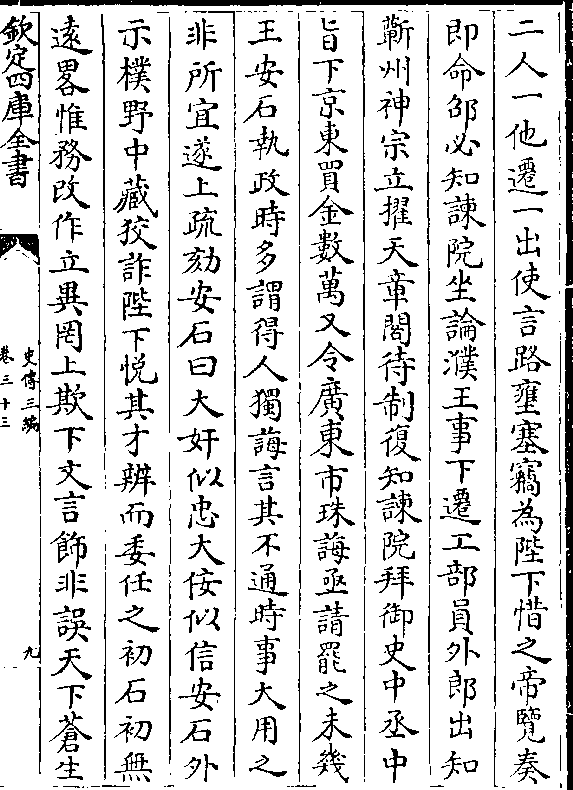 二人一他遷一出使言路壅塞竊為陛下惜之帝覽奏
即命邵必知諫院坐論濮王事下遷工部員外郎出知
蘄州神宗立擢天章閣待制復知諫院拜御史中丞中
旨下京東買金數萬又令廣東市珠誨亟請罷之未幾
王安石執政時多謂得人獨誨言其不通時事大用之
非所宜遂上疏劾安石曰大奸似忠大佞似信安石外
示樸野中藏狡詐陛下悅其才辨而委任之初石初無
遠畧惟務改作立異罔上欺下文言飾非誤天下蒼生
欽定四庫全書
史傳三編
卷三十三
九